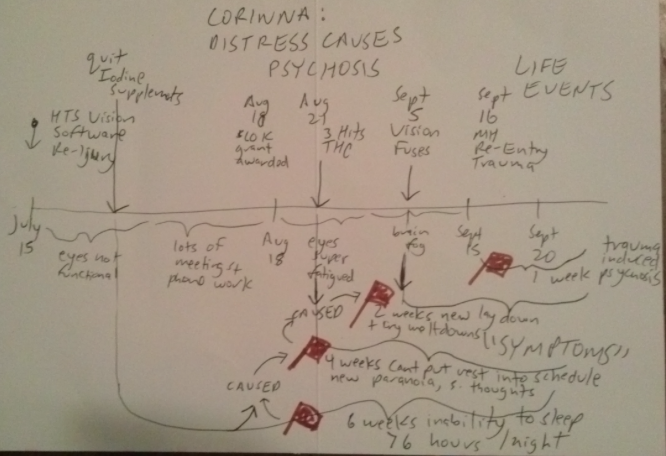 CORINNA:
DISTRESS CAUSES
PSYCHOSIS
LIFE
EVENTS
quit
Iodine
supplements
HTS Vision
Software
Re-Injury
Aug
18
$10K
grant
awarded
Aug
21
3 Hits
THC
Sept
5
Vision
Fuses
Sept
16
MH
Re-Entry
Trauma
July
15
eyes not
functional
lots of
meetings +
phone work
Aug
18
eyes
super
fatigued
brain
fog
Sept
15
Sept
20
1 week
trauma
induced
psychosis
CAUSED
2 weeks new lay down
+ cry meltdowns
"SYMPTOMS"
4 weeks cant put rest into schedule
new paranoia, s. thoughts
CAUSED
6 weeks inability to sleep
76 hours /night